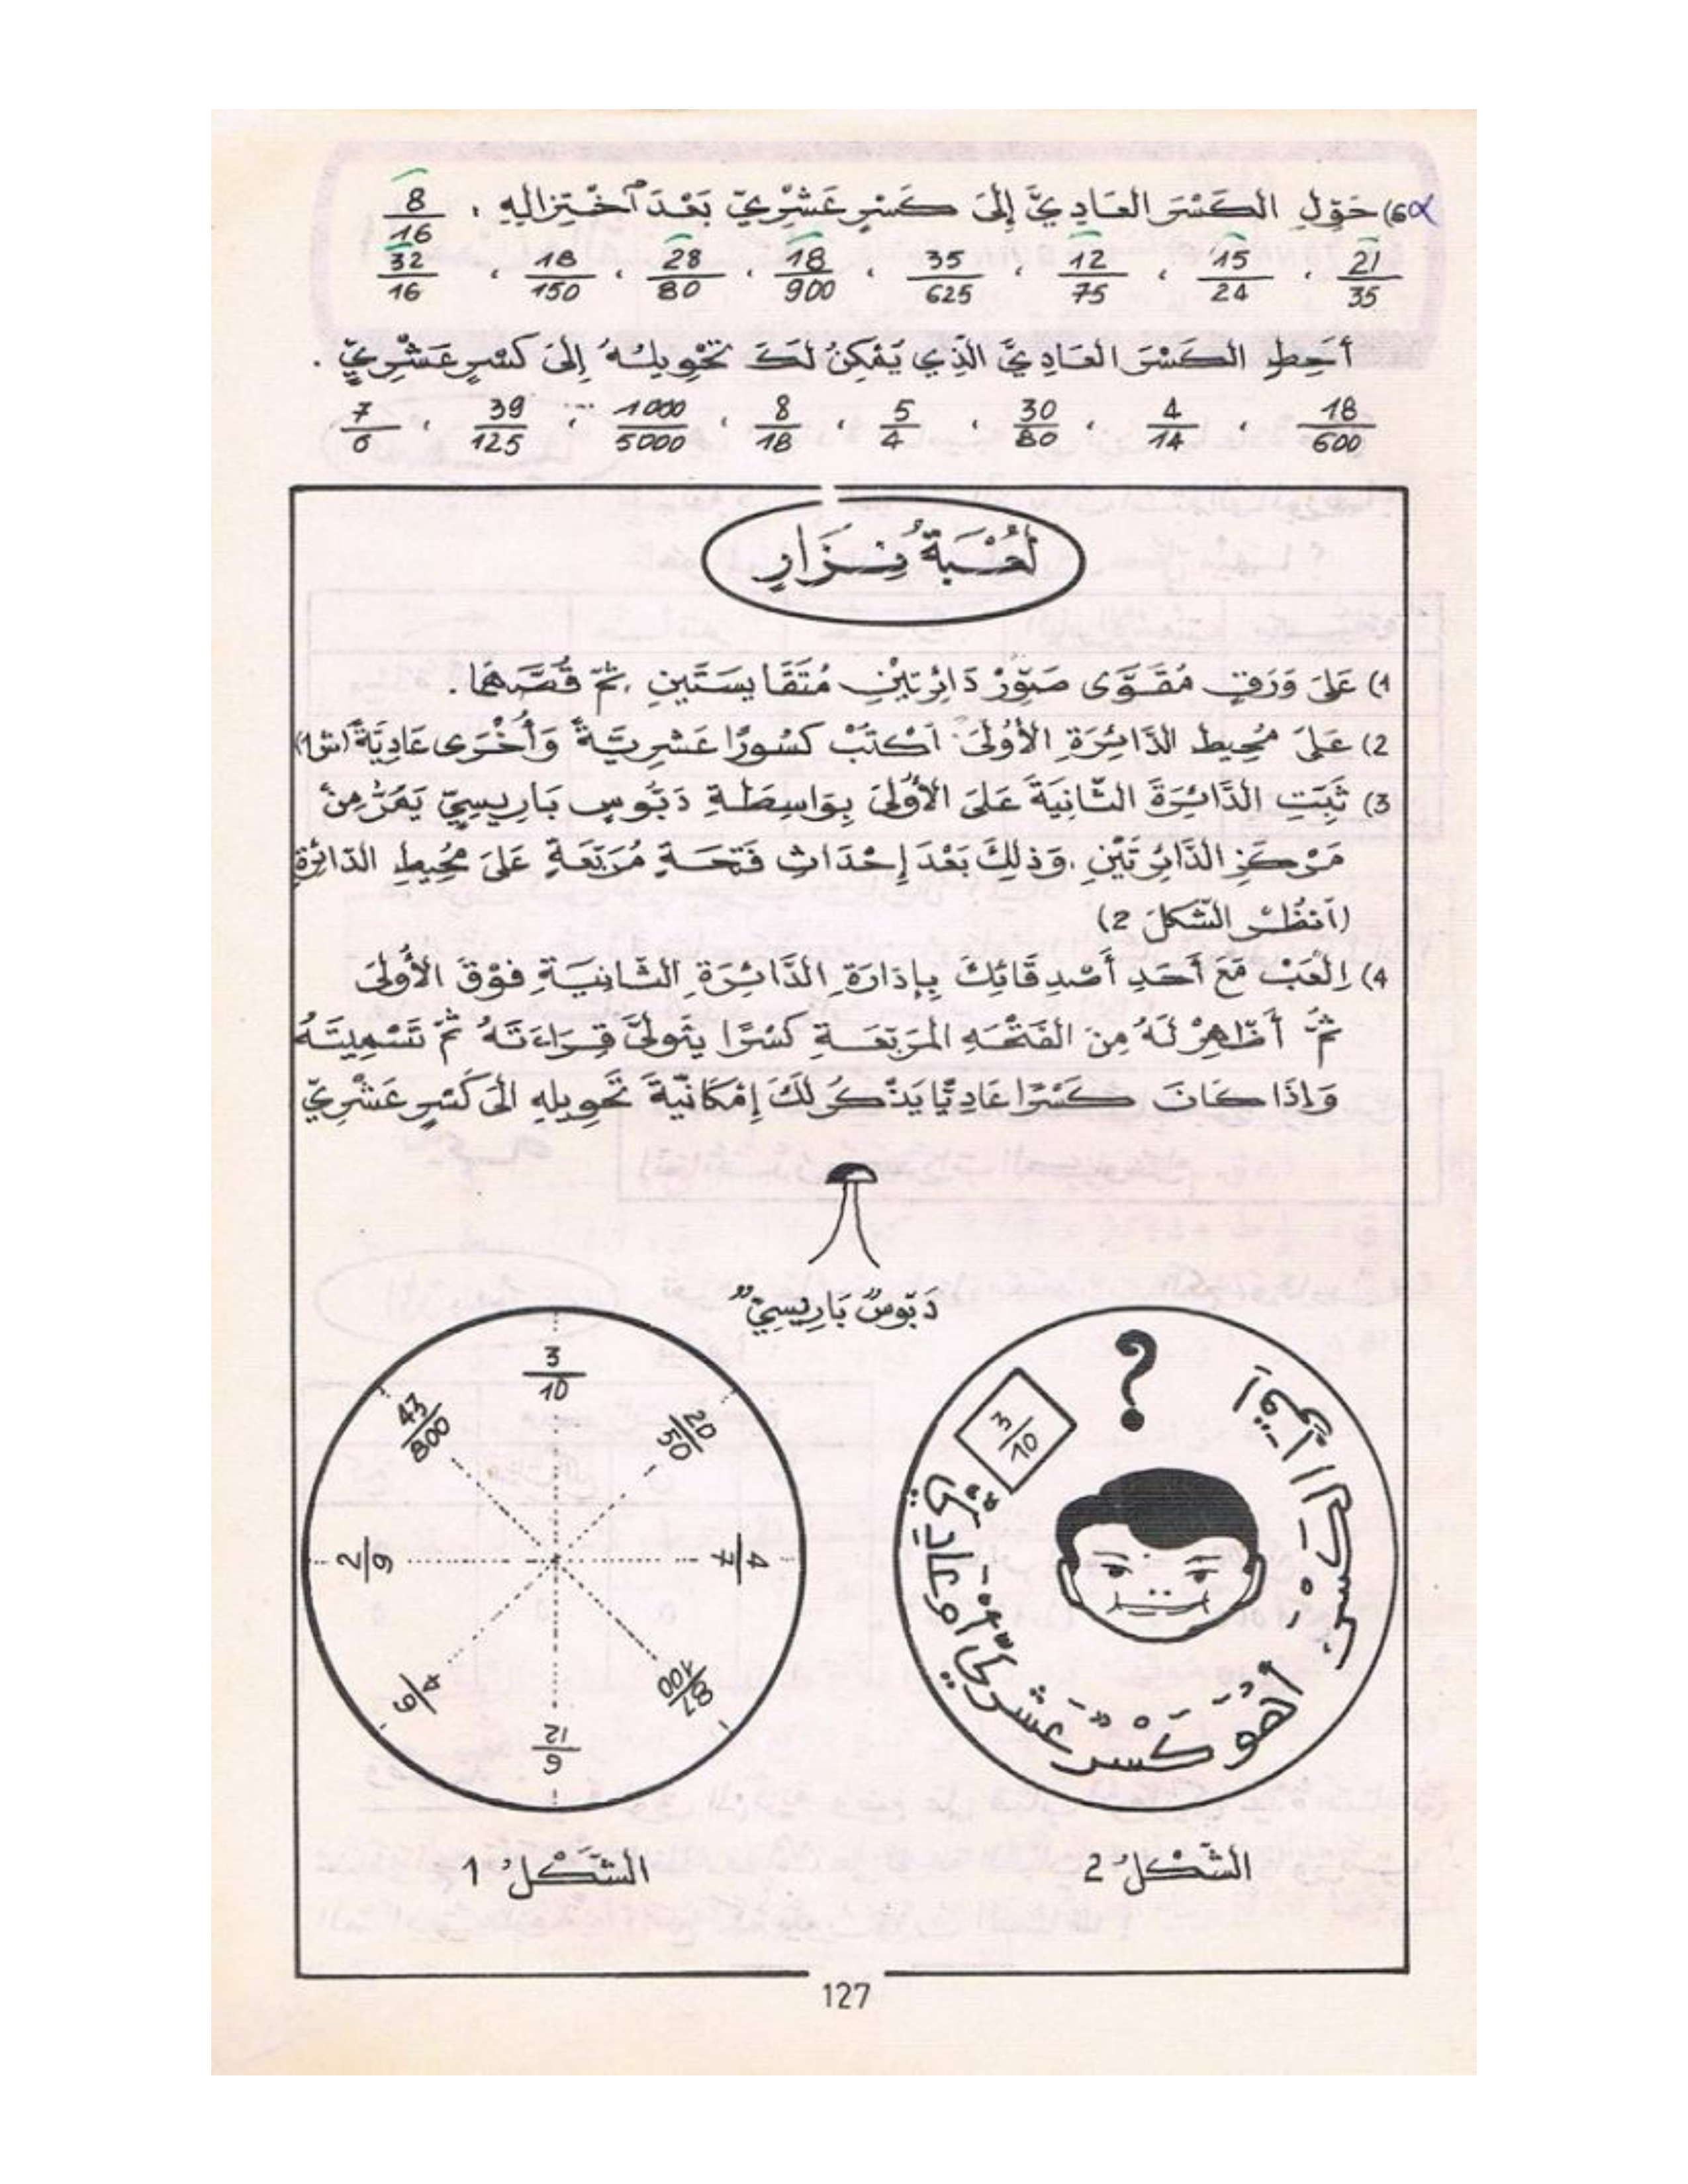 6) حَوِّلِ الكَسْرَ العَادِيَّ إِلَى كَسْرٍ عَشْرِيٍّ بَعْدَ اَخْتِزَالِهِ : 8/16
21/35 ، 15/24 ، 12/75 ، 35/625 ، 18/900 ، 28/80 ، 18/150 ، 32/16
أَحِطِ الكَسْرَ العَادِيَّ الَّذِي يُمْكِنُ لَكَ تَحْوِيلُهُ إِلَى كَسْرٍ عَشْرِيٍّ .
18/600 ، 4/14 ، 30/80 ، 5/4 ، 8/18 ، 1000/5000 ، 39/125 ، 7/6
لُعْبَةُ نِزَارٍ
1) عَلَى وَرَقٍ مُقَوَّى صَوِّرْ دَائِرَتَيْنِ مُتَقَايِسَتَيْنِ ، ثُمَّ قُصَّهُمَا .
2) عَلَى مُحِيطِ الدَّائِرَةِ الأُولَى اَكْتُبْ كُسُورًا عَشْرِيَّةً وَأُخْرَى عَادِيَّةً (ش1)
3) ثَبِّتِ الدَّائِرَةَ الثَّانِيَةَ عَلَى الأُولَى بِوَاسِطَةِ دَبُّوسٍ بَارِيسِيٍّ يَمُرُّ مِنْ
مَرْكَزِ الدَّائِرَتَيْنِ ، وَذَلِكَ بَعْدَ إِحْدَاثِ فَتْحَةٍ مُرَبَّعَةٍ عَلَى مُحِيطِ الدَّائِرَةِ
(اَنْظُرْ الشَّكْلَ 2)
4) اِلْعَبْ مَعَ أَحَدِ أَصْدِقَائِكَ بِإِدَارَةِ الدَّائِرَةِ الثَّانِيَةِ فَوْقَ الأُولَى
ثُمَّ أَظْهِرْ لَهُ مِنَ الفَتْحَهِ المُرَبَّعَةِ كَسْرًا يَتَولَّى قِرَاءَتَهُ ثُمَّ تَسْمِيَتَهُ
وَإِذَا كَانَ كَسْرًا عَادِيًّا يَذْكُرُ لَكَ إِمْكَانِيَّةَ تَحْوِيلِهِ الَى كَسْرٍ عَشْرِيٍّ
دَبُّوسٌ بَارِيسِيٌّ
3/10
20/50
4/7
87/100
12/9
4/6
2/9
43/800
?
3/10
أَهُوَ كَسْرٌ عَشْرِيٌّ أَوْ عَادِيٌّ
الشَّكْلُ 1
الشَّكْلُ 2
127